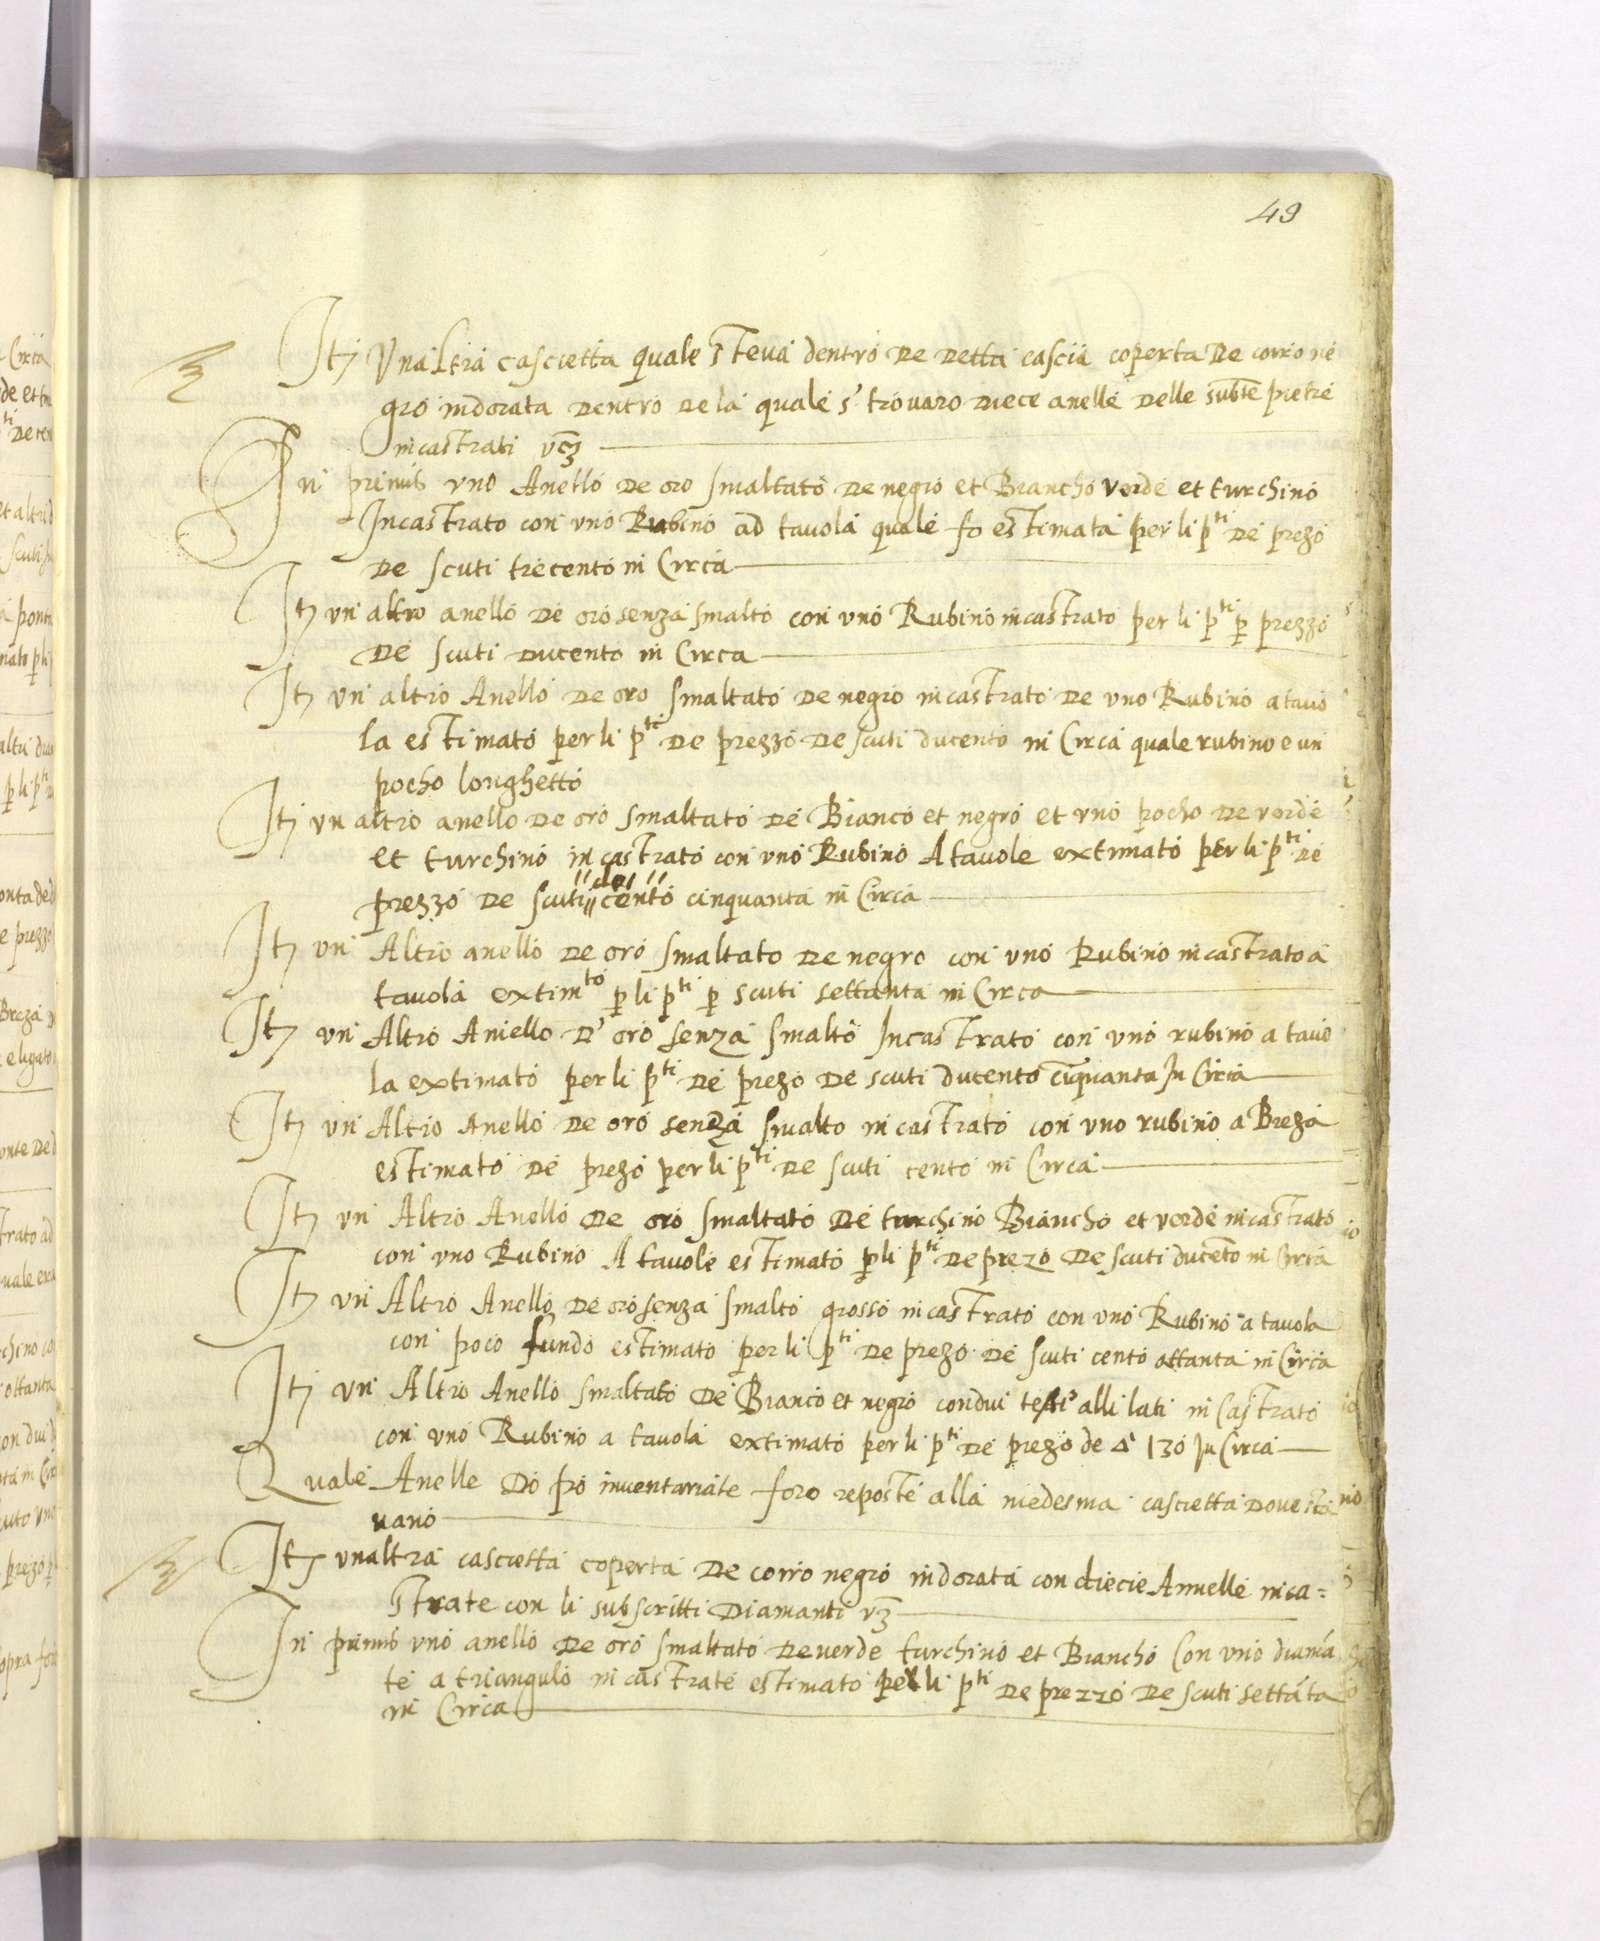 49
Itӡ Vnaltra cascietta quale steua dentro de detta cascia coperta de corro ne
gro indorata dentro de la quale s' trouaro diece anelle delle subte pietre
incastrati vcӡ
In primis vno Anello de oro smaltato de negro et Biancho verde et turchino
Incastrato con vno Rubino ad tauola quale fo estimata per li pti de prezo
de scuti trecento in Circa
Itӡ vn altro anello de oro senza smalto con vno Rubino incastrato per li pti p prezzo
de scuti ducento in Circa
Itӡ vn altro Anello de oro smaltato de negro incastrato de vno Rubino a tauo
la estimato per li pti de prezzo de scuti ducento in Circa quale rubino e un
pocho longhetto
Itӡ vn altro anello de oro smaltato de Bianco et negro et vno pocho de verde
et turchino incastrato con vno Rubino A tauole extimato per li pti de
prezzo de scuti cento cinquanta in Circa
Itӡ vn Altro anello de oro smaltato de negro con vno Rubino incastrato a
tauola extimto p li pti p scuti settanta in Circa
Itӡ vn Altro Aniello d' oro senza smalto Incastrato con vno rubino a tauo
la extimato per li pti de prezo de scuti ducento cinquanta In Circa
Itӡ vn Altro Anello de oro senza smalto incastrato con vno rubino a Breza
estimato de prezo per li pti de scuti cento in Circa
Itӡ vn Altro Anello de oro smaltato de turchino Biancho et verde incastrato
con vno Rubino A tauole estimato p li pti de prezo de scuti ducento in Circa
Itӡ vn Altro Anello de oro senza smalto grosso incastrato con vno Rubino a tauola
con poco fundo estimato per li pti de prezo de scuti cento ottanta in Circa
Itӡ vn Altro Anello smaltato de Bianco et negro con dui teste alli lati in Castrato
con vno Rubino a tauola extimato per li pti de prezo de Δi 130 In Circa
Quale Anelle do po inuentariate foro reposte alla medesma cascietta doue sta
uano
Itӡ vnaltra cascietta coperta de corro negro indorata con diecie Annelle inca=
strate con li subscritti Diamanti vӡ
In primis vno anello de oro smaltato de uerde turchino et Biancho Con vno diama
te a triangulo incastrate estimato per li pti de prezzo de scuti settata
in Circa